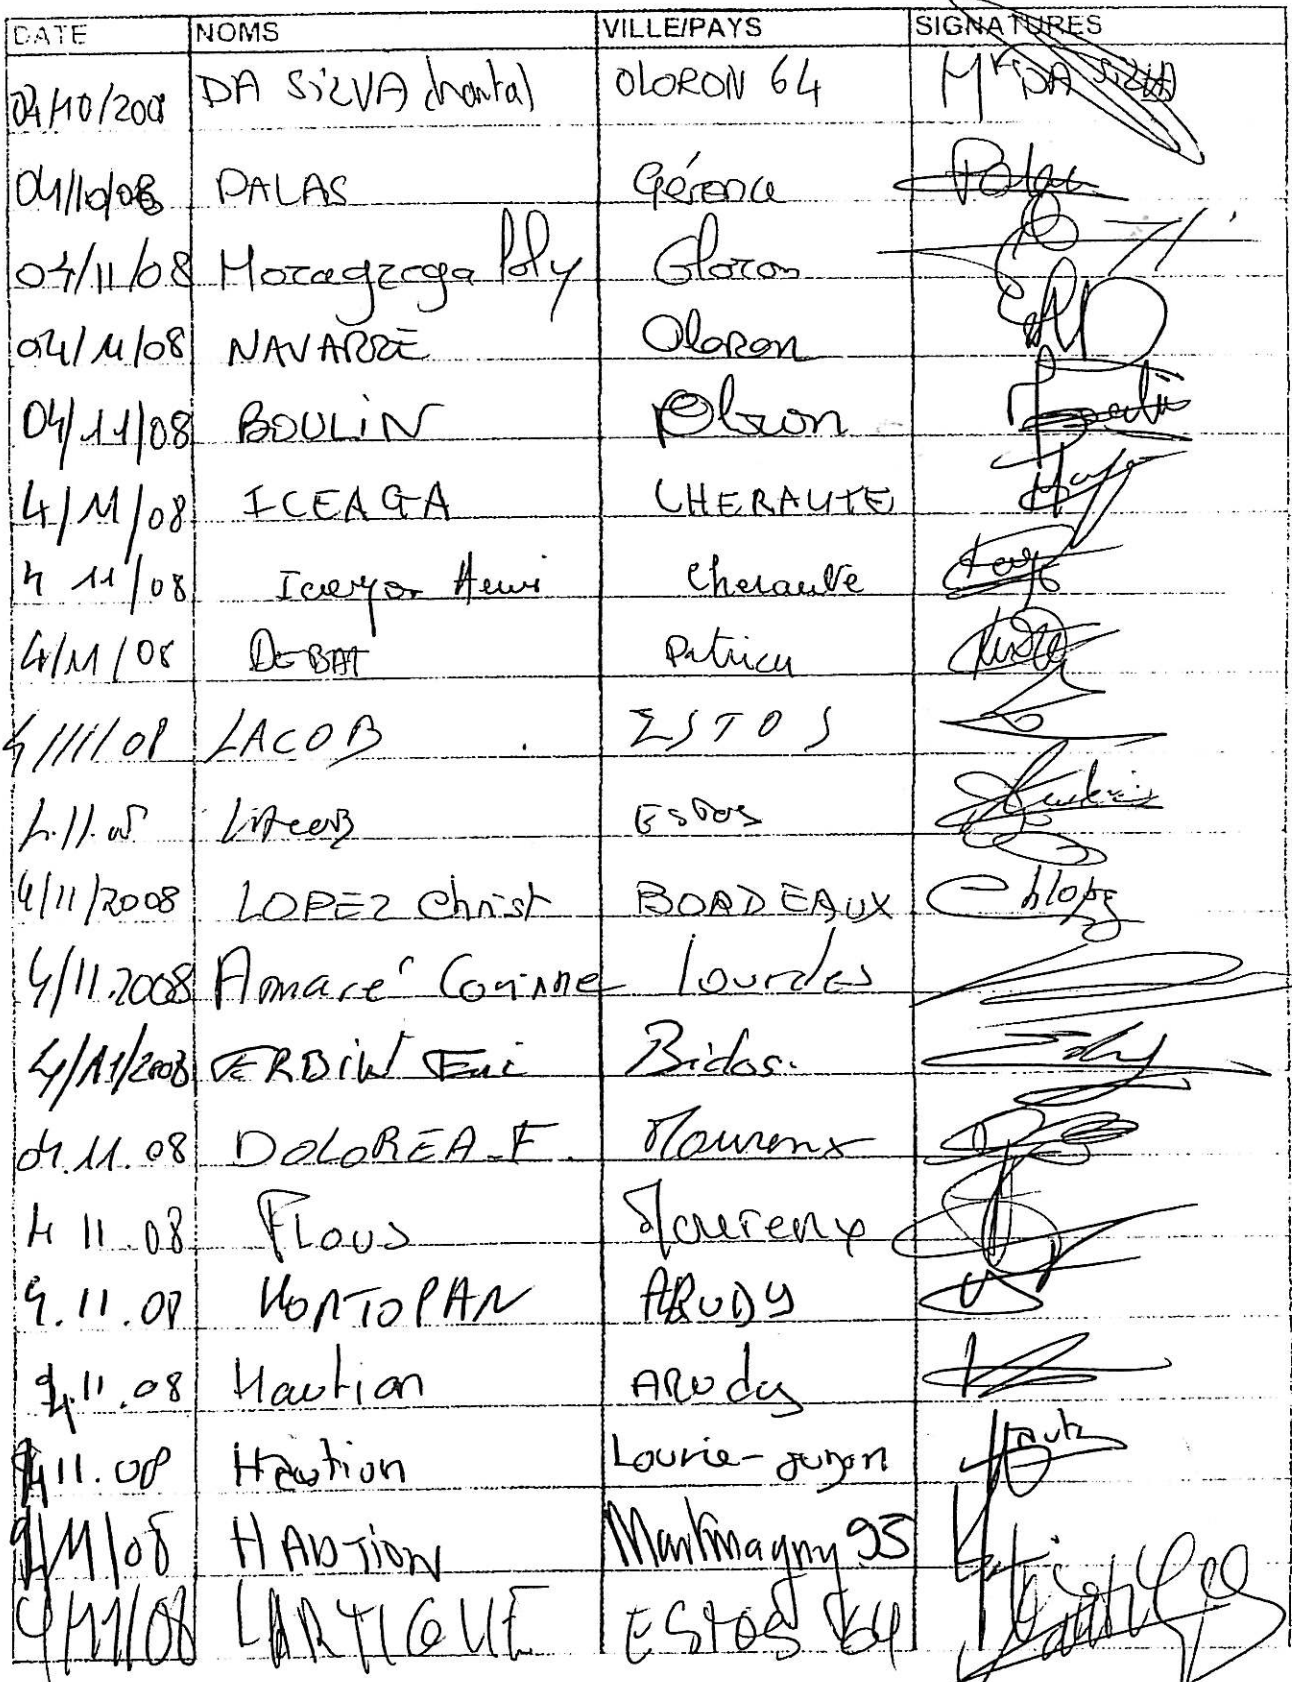 DATE NOMS VILLE/PAYS SIGNATURES
04/10/2008 DA SILVA chantal OLORON 64 Me DA SILVA
04/10/08 PALAS Géronce Palas
04/11/08 Moragrega Poly Oloron
04/11/08 NAVARRE Oloron
04/11/08 BOULIN Oloron
4/11/08 ICEAGA CHERAUTE
4 11/08 Henri Cheraute
4/11/08 DEBAT Patricia
4/11/08 LACOB ESTOS
4.11.08 LACOB ESTOS
4/11/2008 LOPEZ Christ BORDEAUX Chlopez
4/11.2008 Amaré Corinne Lourdes
4/11/2008 Bidos.
04.11.08 DOLOREA.F. Mourenx
4 11.08 FLOUS Mourenx
4.11.08 HORTOPAN ARUDY
4.11.08 Haution ARudy
4 11.08 Haution Louvie-juzon
4/11/08 HAUTION Montmagny 95
4/11/08 LARTIGUE ESTOS 64